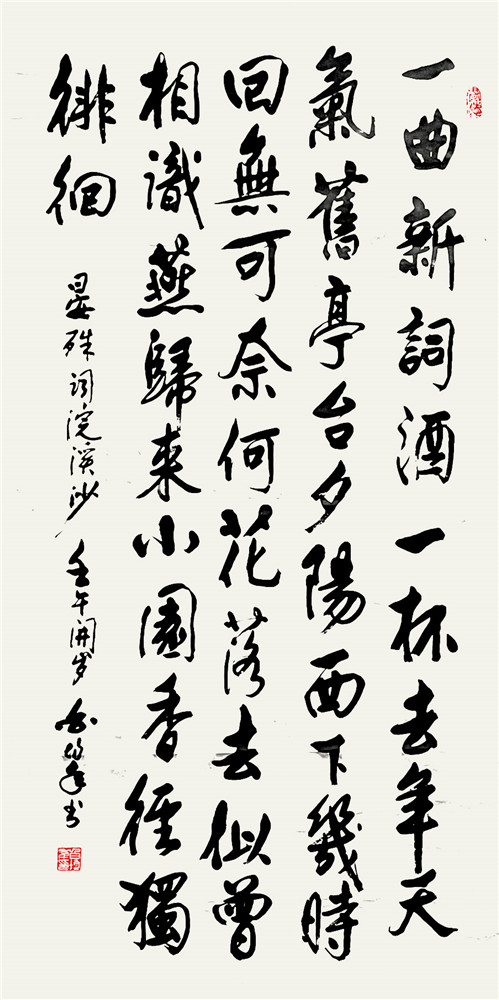 一曲新詞酒一杯去年天
氣舊亭台夕陽西下幾時
回無可奈何花落去似曾
相識燕歸來小園香徑獨
徘徊
晏殊词浣溪沙 壬午開岁 书